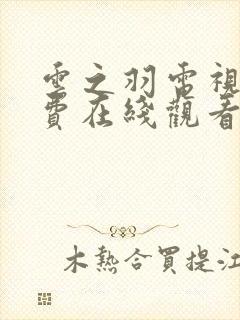 雲之羽電視
費在綫觀看
木熱合買提江